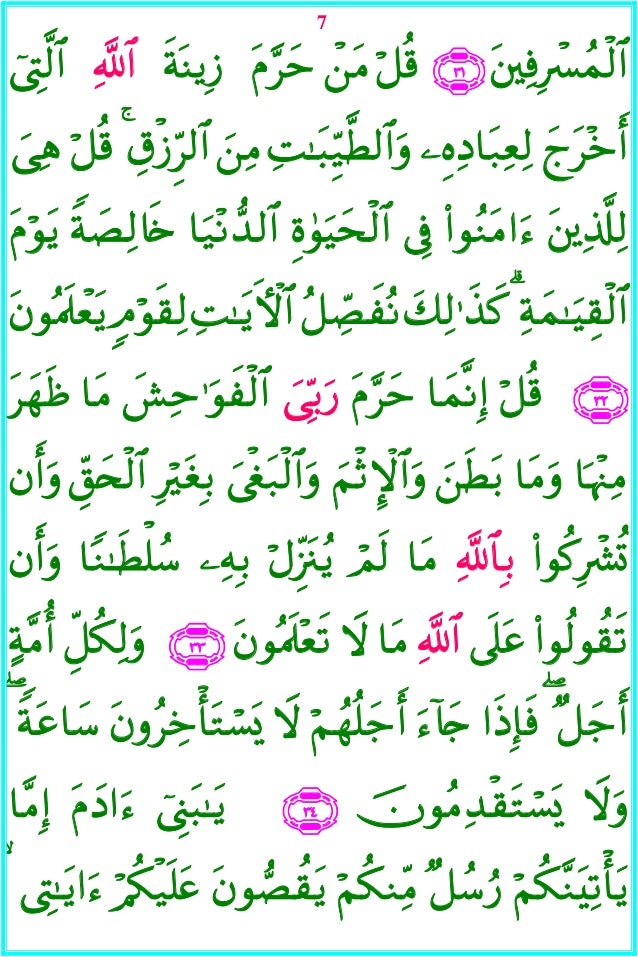 7
ٱلۡمُسۡرِفِينَ ٣١ قُلۡ مَنۡ حَرَّمَ زِينَةَ ٱللَّهِ ٱلَّتِيٓ
أَخۡرَجَ لِعِبَادِهِۦ وَٱلطَّيِّبَٰتِ مِنَ ٱلرِّزۡقِۚ قُلۡ هِيَ
لِلَّذِينَ ءَامَنُواْ فِي ٱلۡحَيَوٰةِ ٱلدُّنۡيَا خَالِصَةٗ يَوۡمَ
ٱلۡقِيَٰمَةِۗ كَذَٰلِكَ نُفَصِّلُ ٱلۡأٓيَٰتِ لِقَوۡمٖ يَعۡلَمُونَ
٣٢ قُلۡ إِنَّمَا حَرَّمَ رَبِّيَ ٱلۡفَوَٰحِشَ مَا ظَهَرَ
مِنۡهَا وَمَا بَطَنَ وَٱلۡإِثۡمَ وَٱلۡبَغۡيَ بِغَيۡرِ ٱلۡحَقِّ وَأَن
تُشۡرِكُواْ بِٱللَّهِ مَا لَمۡ يُنَزِّلۡ بِهِۦ سُلۡطَٰنٗا وَأَن
تَقُولُواْ عَلَى ٱللَّهِ مَا لَا تَعۡلَمُونَ ٣٣ وَلِكُلِّ أُمَّةٍ
أَجَلٞۖ فَإِذَا جَآءَ أَجَلُهُمۡ لَا يَسۡتَأۡخِرُونَ سَاعَةٗۖ
وَلَا يَسۡتَقۡدِمُونَ ٣٤ يَٰبَنِيٓ ءَادَمَ إِمَّا
يَأۡتِيَنَّكُمۡ رُسُلٞ مِّنكُمۡ يَقُصُّونَ عَلَيۡكُمۡ ءَايَٰتِي ۙ